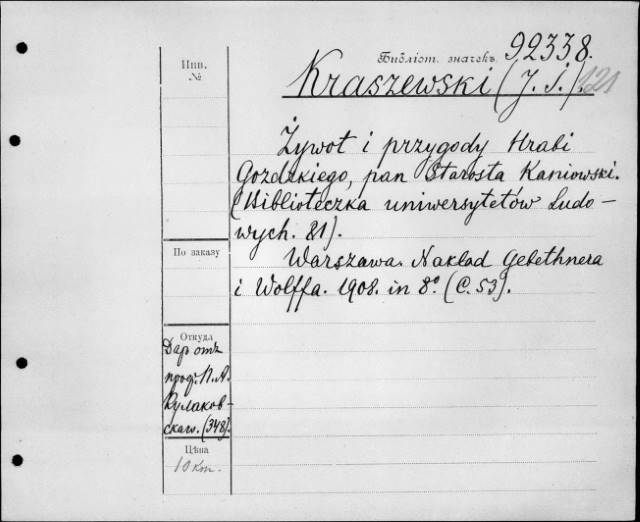 Инв.
№
Библіот. значекъ 92338.
Kraszewski (J. I.). 121
Żywot i przygody Hrabi
Gozdzkiego, pan Starosta Kaniowski.
(Biblioteczka uniwersytetów Ludo-
wych. 81).
По заказу
Warszawa. Nakład Gebethnera
i Wolffa. 1908. in 8°. (C. 53).
Откуда
Даръ отъ
проф. П. А.
Кулаков-
скаго. (348).
Цѣна
10 к.